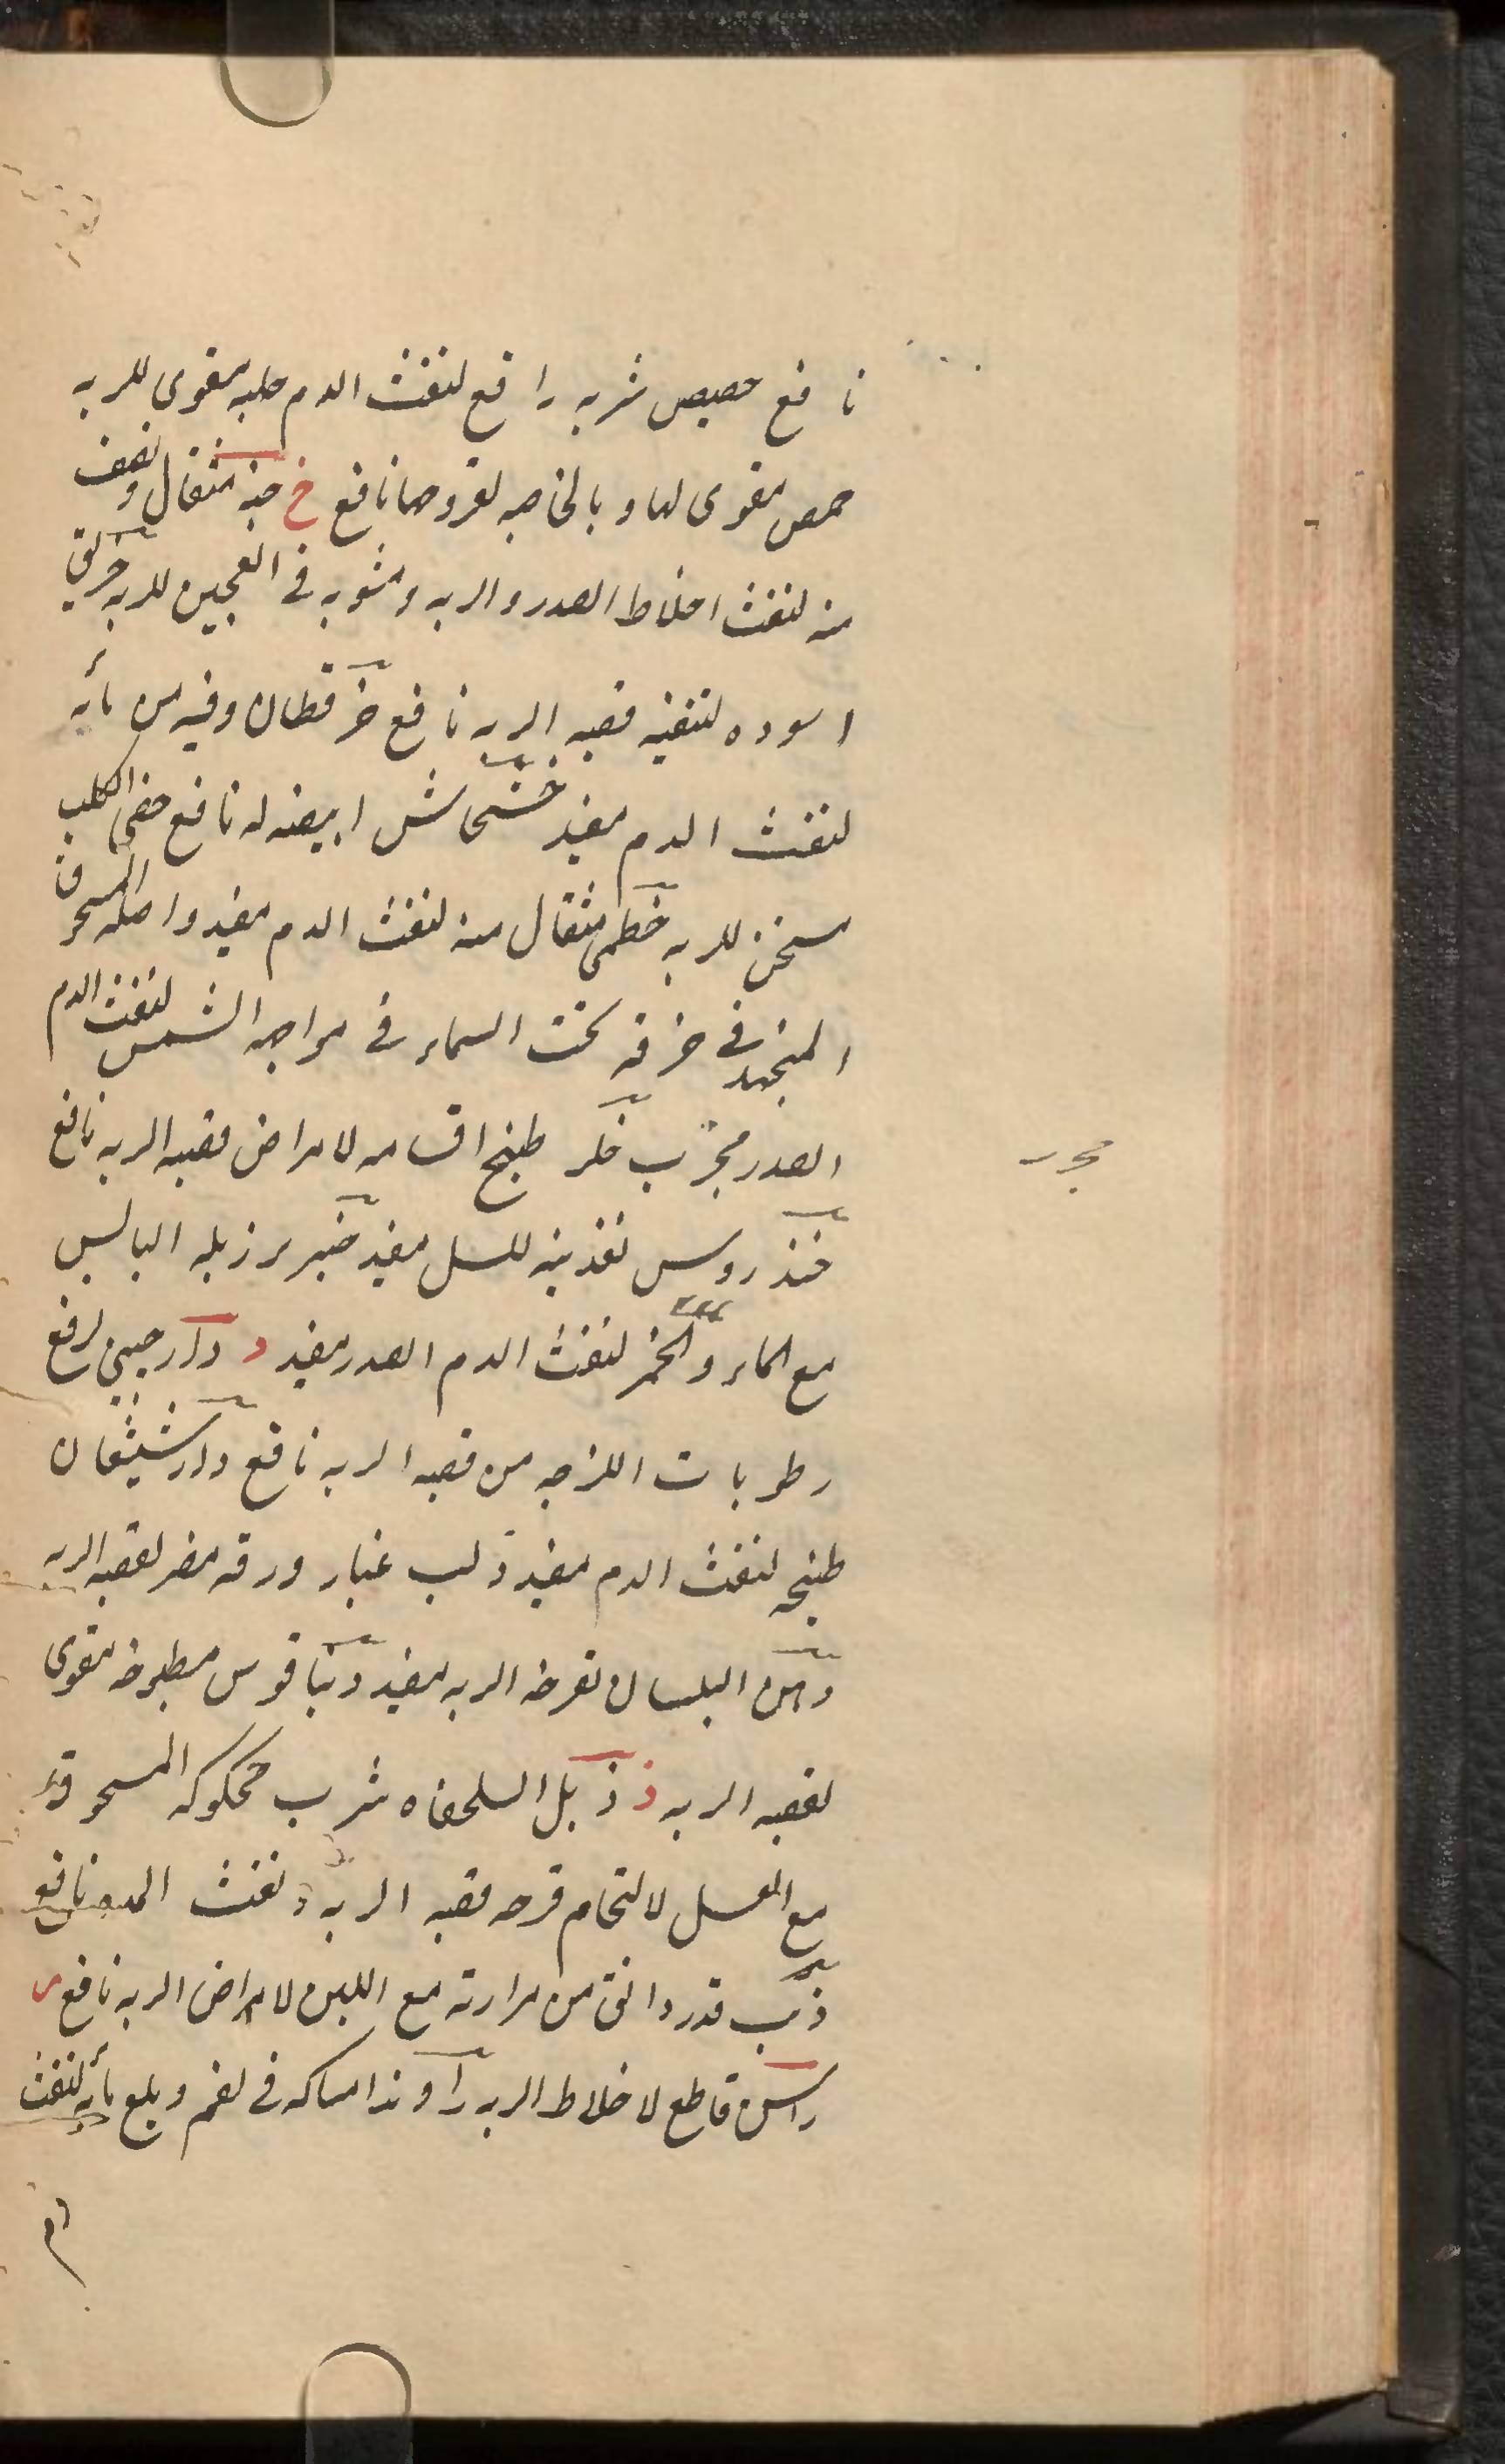 نافع حصیص شربه رافع لنفث الدم حلبه مقوی للریه
حمص مقوی لها و بالخاصه لقروحها نافع خ خبه مثقال ونصف
منه لنفث اخلاط الصدر والریه ومشویه فی العجین للریه خربق
اسوده لتنقیه قصبه الریه نافع خرقطان وفیه من مائه
لنفث الدم مفید خشخاش ابیضه له نافع خصی الکلب
سخن للریه خطمی مثقال منه لنفث الدم مفید واصله المسحوق
المنجمد فی خرقه تحت السماء فی مواجه الشمس لنفث الدم
الصدر مجرّب خلر طبیخ اقسامه لامراض قصبه الریه نافع
مجرب
خندروس تغذیته للسل مفید خنزیر زبله الیابس
مع الماء والخمر لنفث الدم الصدر مفید د دارچینی لرفع
رطوبات اللزجه من قصبه الریه نافع دارشیشعان
طبیخه لنفث الدم مفید دلب غبار ورقه مضر لقصبه الریه
دهن البلسان لقرحه الریه مفید دیناقوس مطبوخه مقوی
لقصبه الریه ذ ذبل السلحفاه شرب محکوکه المسحوقه
مع العسل لالتحام قرحه قصبه الریه و نفث المده نافع
ذئب قدر دانق من مرارته مع اللبن لامراض الریه نافع ر
راسن قاطع لاخلاط الریه راوند امساکه فی لفم وبلع مائه لنفث